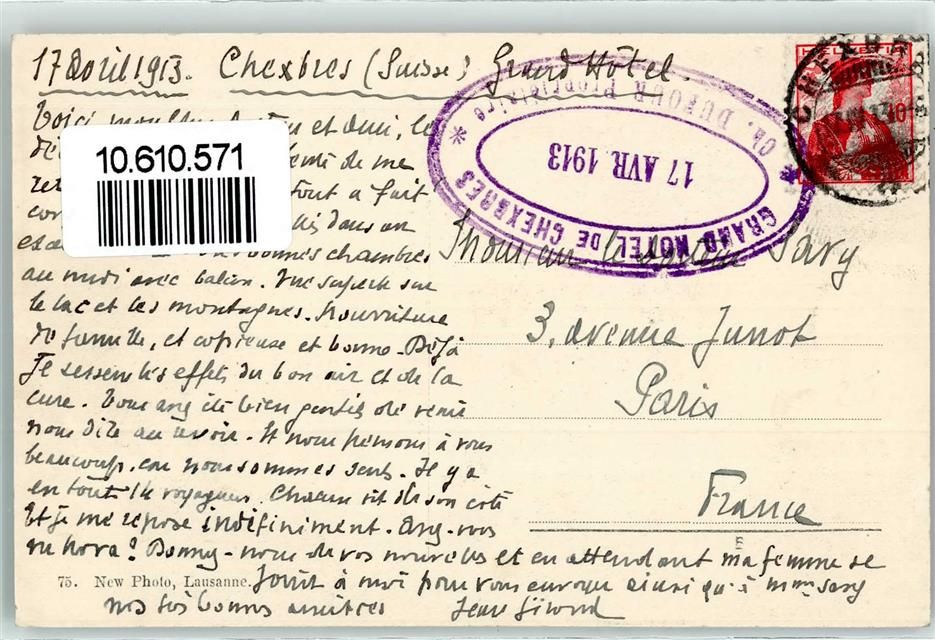 17 avril 1913. Chexbres (Suisse) Grand Hôtel
HELVETIA
CHEXBRES
10
GRAND HOTEL DE CHEXBRES
Ch. DUFOUR Propriétaire
17 AVR 1913
10.610.571
Voici mon et ami, le
de me
tout a fait
dans un
bonnes chambres
au midi avec balcon. Vue superbe sur
le lac et les montagnes. Nourriture
de famille, et copieuse et bonne. Déjà
je ressens les effets du bon air et de la
cure. Vous avez été bien gentils de venir
nous dire au revoir. Et nous pensons à vous
beaucoup, car nous sommes seuls. Il y a
en tout 14 voyageurs. Chacun vit de son côté
Et je me repose indéfiniment. Avez-vous
? Donnez-nous de vos nouvelles et en attendant ma femme se
joint à moi pour vous envoyer ainsi qu'à Mme Savy
nos très bonnes amitiés
Jean Giroud
Monsieur le docteur Savy
3, avenue Junot
Paris
France
75. New Photo, Lausanne.